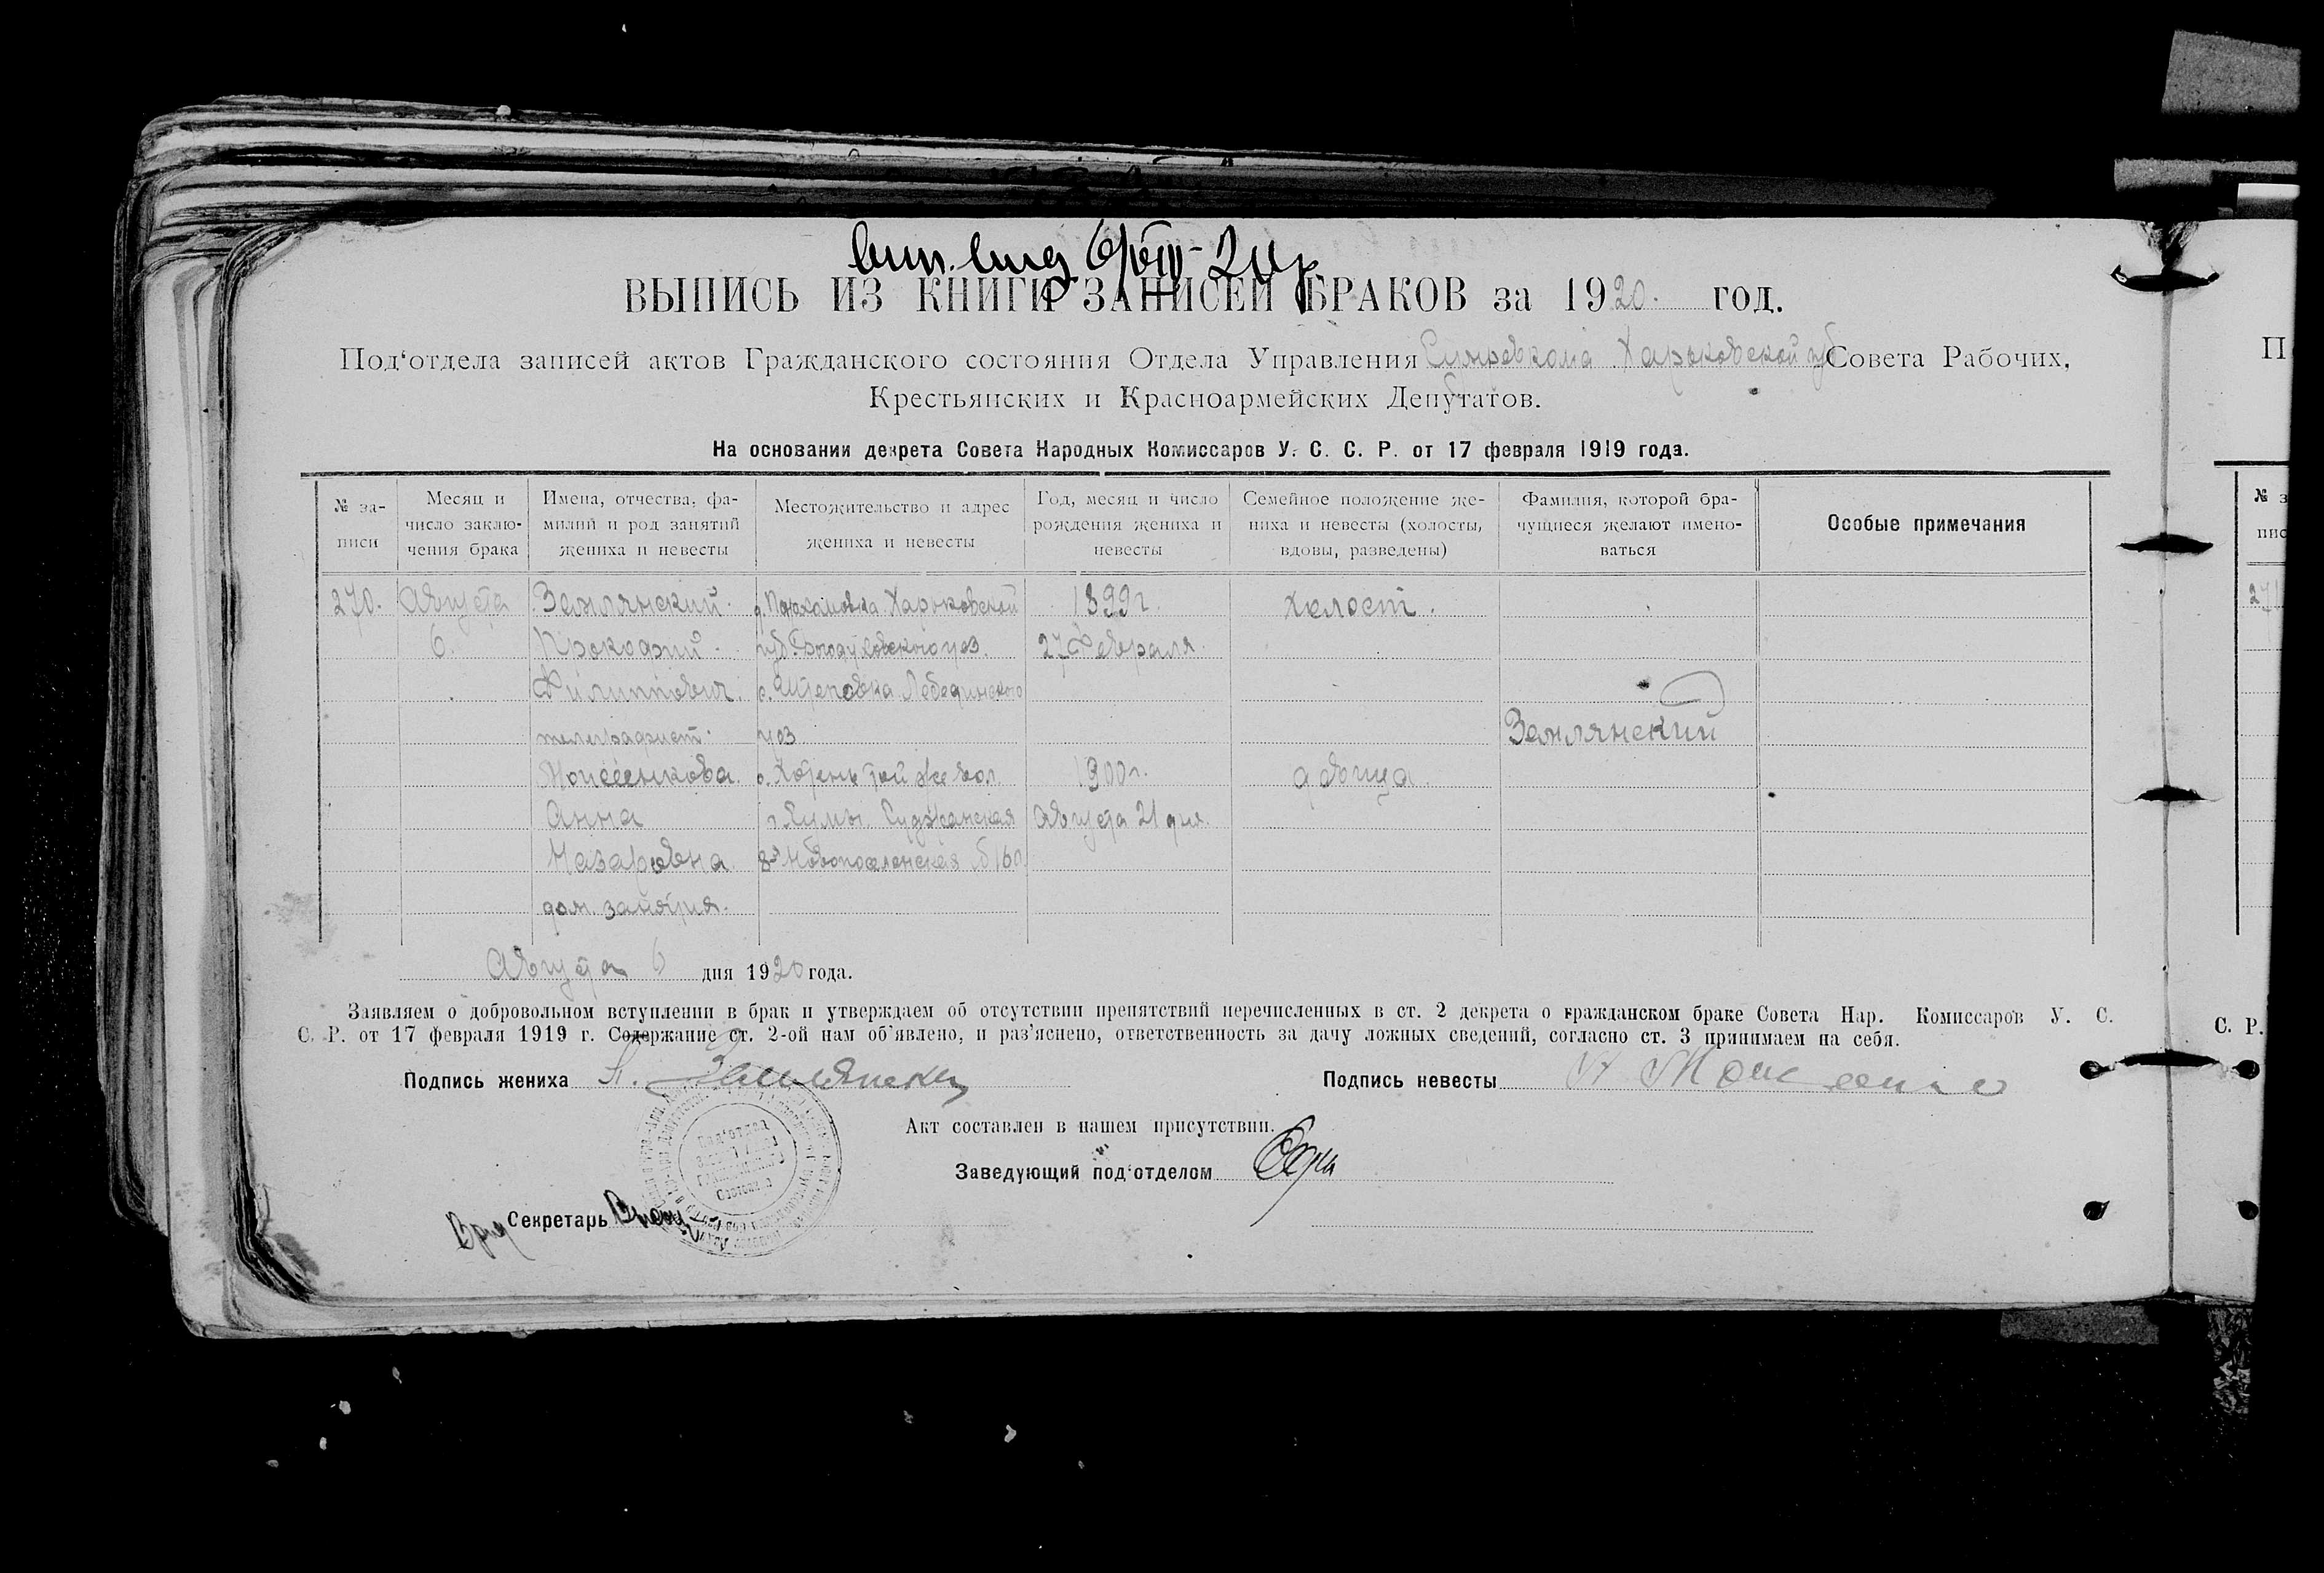 ВЫПИСЬ ИЗ КНИГИ ЗАПИСЕЙ БРАКОВ за 1920. год.
Под‘отдела записей актов Гражданского состояния Отдела Управления Сумревкома Харьковской губ Совета Рабочих,
Крестьянских и Красноармейских Депутатов.
На основании декрета Совета Народных Комиссаров У. С. С. Р. от 17 февраля 1919 года.
№ за-
писи
Месяц и
число заклю-
чения брака
Имена, отчества, фа-
милии и род занятий
жениха и невесты
Местожительство и адрес
жениха и невесты
Год, месяц и число
рождения жениха и
невесты
Семейное положение же-
ниха и невесты (холосты,
вдовы, разведены)
Фамилия, которой бра-
чущиеся желают имено-
ваться
Особые примечания
270.
Августа
6.
Землянский.
Прокофий.
Филиппович.
телеграфист.
Моисеенкова.
Анна
Назаровна.
дом. занятия.
Харьковской
губ.
с. Штеповка Лебединского
уез
той же вол.
г. Сумы. Суджанская
Новопоселенская
1899 г.
27 Февраля.
1900 г.
Августа 21 дня.
холост.
девица.
Землянский
Августа 6 дня 1920 года.
Заявляем о добровольном вступлении в брак и утверждаем об отсутствии препятствий перечисленных в ст. 2 декрета о гражданском браке Совета Нар. Комиссаров У. С.
С. Р. от 17 февраля 1919 г. Содержание ст. 2-ой нам об’явлено, и раз’яснено, ответственность за дачу ложных сведений, согласно ст. 3 принимаем на себя.
Подпись жениха П. Землянский
Подпись невесты А Моисеенко
Акт составлен в нашем присутствии.
Заведующий под‘отделом
Врид Секретарь
П
№ з
пис
271
С. Р.